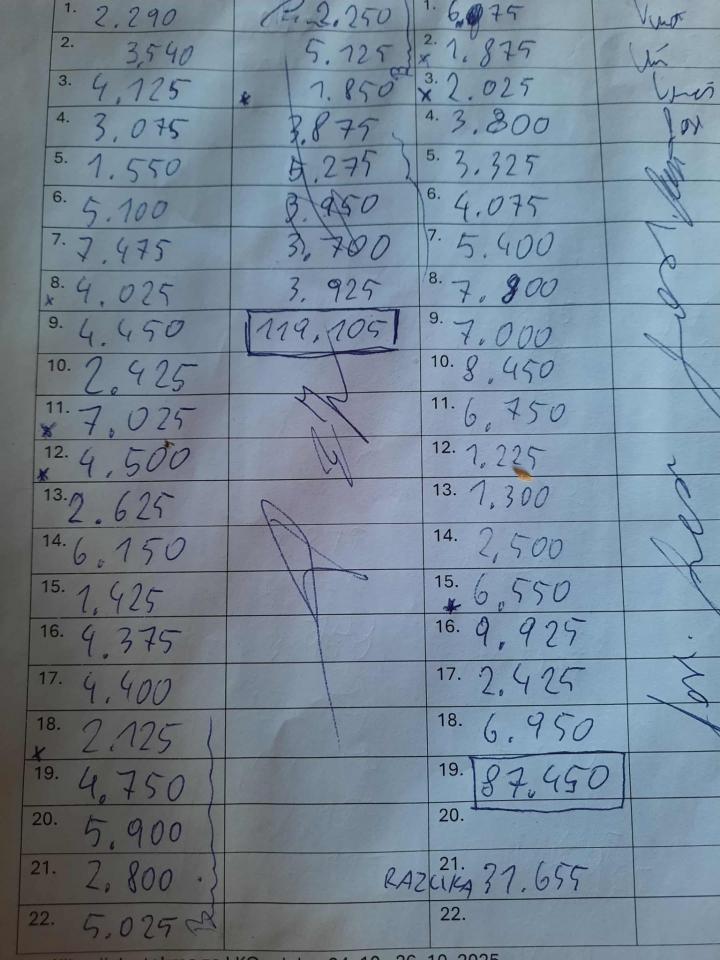 1. 2.290 2.250 1. 6.075
2. 3,540 5.125 2. x 1.875
3. 4.125 * 1.850 3. x 2.025
4. 3.075 3.875 4. 3.800
5. 1.550 5.275 5. 3.325
6. 5.100 3.950 6. 4.075
7. 7.475 3.700 7. 5.400
8. x 4.025 3.925 8. 7.800
9. 4.450 119.105 9. 7.000
10. 2.425 10. 8.450
11. x 7.025 11. 6.750
12. x 4.500 12. 1.225
13. 2.625 13. 1.300
14. 6.150 14. 2,500
15. 1.425 15. * 6.550
16. 4.375 16. 9.925
17. 4.400 17. 2.425
18. x 2.125 18. 6.950
19. 4.750 19. 87.450
20. 5.900 20.
21. 2.800 21. RAZLIKA 31.655
22. 5.025 22.